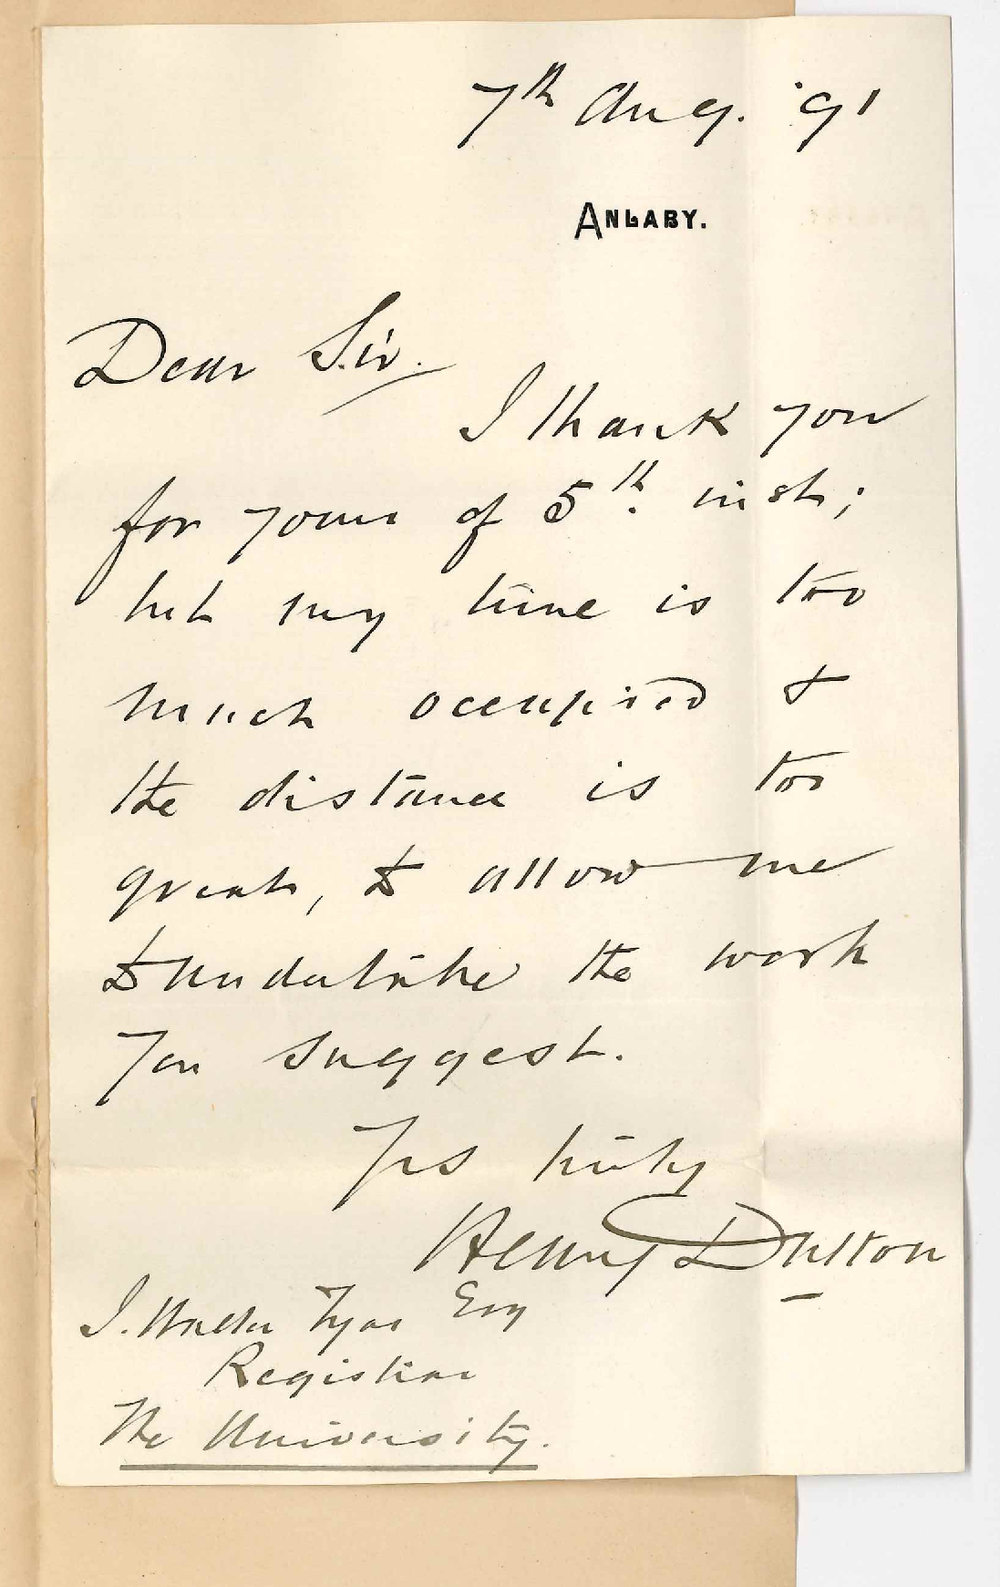 7th Aug. '91
ANLABY.
Dear Sir.
I thank you
for yours of 5th. inst;
but my time is too
much occupied &
the distance is too
great, to allow me
to undertake the work
you suggest.
Yrs truly
Henry Dutton
J. Walter Tyas Esq
Registrar
The University.